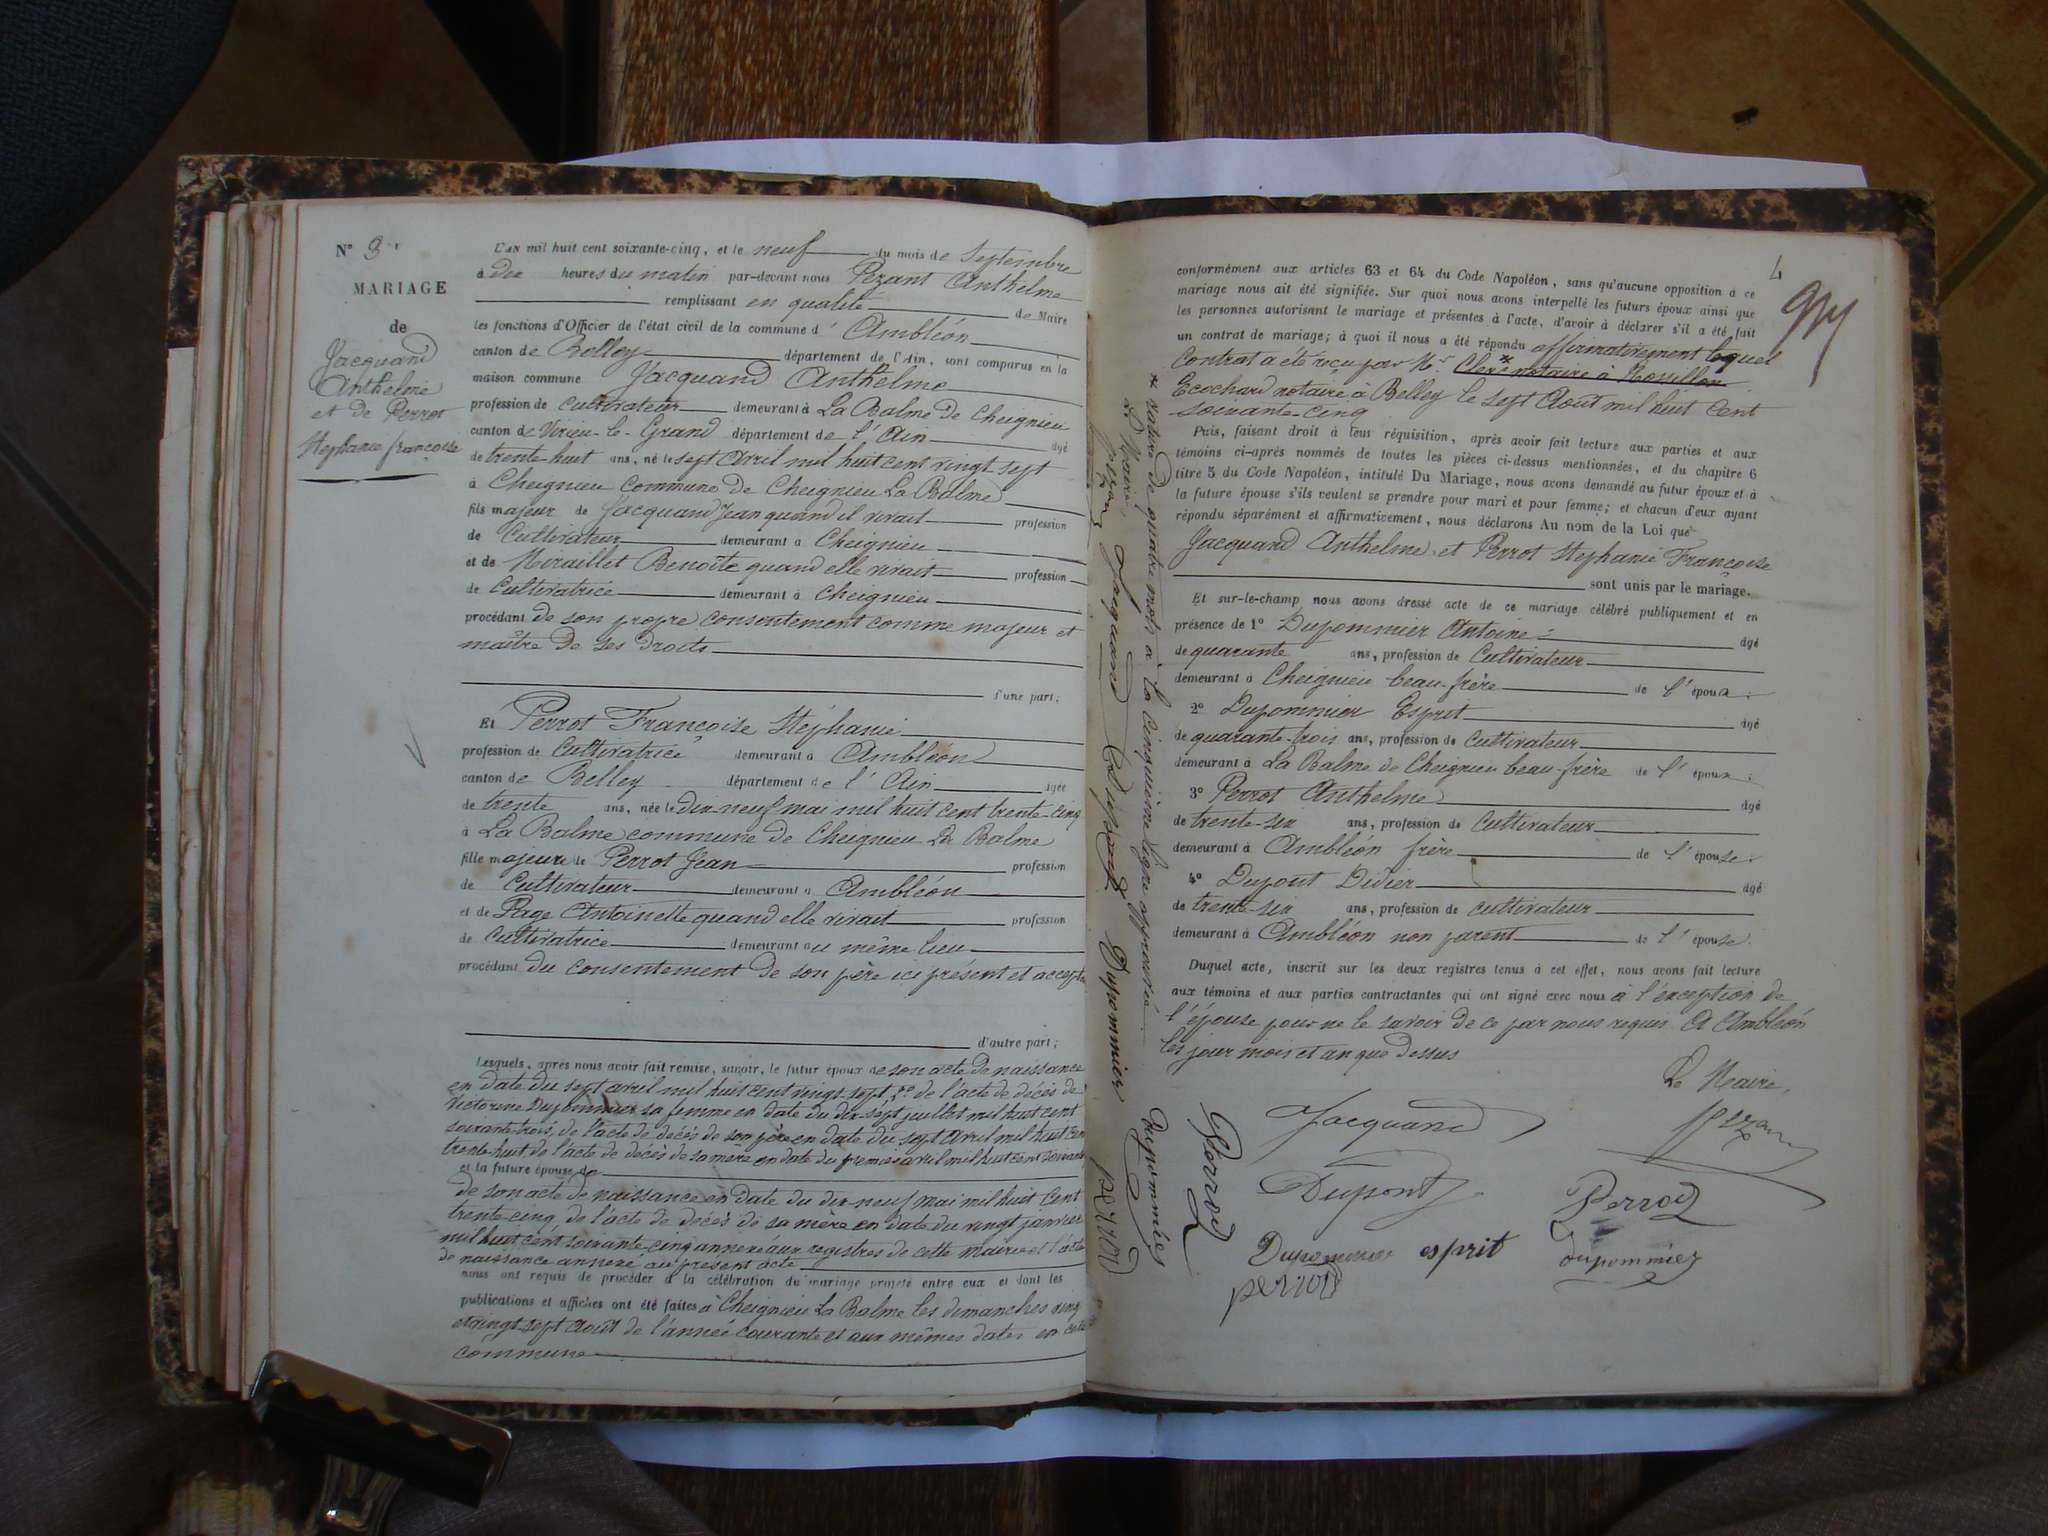 N° 3
MARIAGE
de
Jacquand
Anthelme
et de Perrot
Stephanie françoise
L'AN mil huit cent soixante-cinq, et le neuf du mois de Septembre
à dix heures du matin par-devant nous Pezant Anthelme
remplissant en qualité de Maire
les fonctions d'Officier de l'état civil de la commune d' Ambléon
canton de Belley département de l'Ain, sont comparus en la
maison commune Jacquand Anthelme
profession de Cultivateur demeurant à La Balme de Cheignieu
canton de Virieu-le-Grand département de l'Ain âgé
de trente-huit ans, né le sept Avril mil huit cent vingt sept
à Cheignieu Commune de Cheignieu La Balme
fils majeur de Jacquand Jean quand il vivait profession
de Cultivateur demeurant à Cheignieu
et de Miraillet Benoîte quand elle vivait profession
de Cultivatrice demeurant à Cheignieu
procédant de son propre consentement comme majeur et
maître de ses droits
d'une part;
Et Perrot Françoise Stéphanie
profession de Cultivatrice demeurant à Ambléon
canton de Belley département de l'Ain âgée
de trente ans, née le dix-neuf mai mil huit cent trente-cinq
à La Balme commune de Cheignieu La Balme
fille majeure de Perrot Jean profession
de Cultivateur demeurant à Ambléon
et de Page Antoinette quand elle vivait profession
de Cultivatrice demeurant au même lieu
procédant du consentement de son père ici présent et accepte
d'autre part;
Lesquels, après nous avoir fait remise, savoir, le futur époux de son acte de naissance
en date du sept avril mil huit cent vingt-sept, 2° de l'acte de décès de
Victorine Dupommier sa femme en date du dix-sept juillet mil huit cent
soixante-trois, de l'acte de décès de son père en date du sept Avril mil huit cent
trente-huit de l'acte de décès de sa mère en date du premier avril mil huit cent soixante
et la future épouse de
de son acte de naissance en date du dix-neuf mai mil huit Cent
trente-cinq, de l'acte de décès de sa mère en date du vingt janvier
mil huit cent soixante-cinq annexé aux registres de cette mairie et l'acte
de naissance annexé au présent acte
nous ont requis de procéder à la célébration du mariage projeté entre eux et dont les
publications et affiches ont été faites à Cheignieu La Balme les dimanches vingt
et vingt-sept Août de l'année courante et aux mêmes dates en cette
commune
4
conformément aux articles 63 et 64 du Code Napoléon, sans qu'aucune opposition à ce
mariage nous ait été signifiée. Sur quoi nous avons interpellé les futurs époux ainsi que
les personnes autorisant le mariage et présentes à l'acte, d'avoir à déclarer s'il a été fait
un contrat de mariage; à quoi il nous a été répondu affirmativement lequel
Contrat a été reçu par Mr Clerc notaire à Rossillon
Ecochard notaire à Belley le sept Août mil huit Cent
soixante-cinq
Puis, faisant droit à leur réquisition, après avoir fait lecture aux parties et aux
témoins ci-après nommés de toutes les pièces ci-dessus mentionnées, et du chapitre 6
titre 5 du Code Napoléon, intitulé Du Mariage, nous avons demandé au futur époux et à
la future épouse s'ils veulent se prendre pour mari et pour femme; et chacun d'eux ayant
répondu séparément et affirmativement, nous déclarons Au nom de la Loi que
Jacquand Anthelme et Perrot Stephanie Françoise
sont unis par le mariage.
Et sur-le-champ nous avons dressé acte de ce mariage célébré publiquement et en
présence de 1° Dupommier Antoine âgé
de quarante ans, profession de Cultivateur
demeurant à Cheignieu beau-frère de l'époux
2° Dupommier Esprit âgé
de quarante-trois ans, profession de cultivateur
demeurant à La Balme de Cheignieu beau-frère de l'époux
3° Perrot Anthelme âgé
de trente-six ans, profession de Cultivateur
demeurant à Ambléon frère de l'épouse
4° Dupont Didier âgé
de trente-six ans, profession de cultivateur
demeurant à Ambléon non parent de l'épouse
Duquel acte, inscrit sur les deux registres tenus à cet effet, nous avons fait lecture
aux témoins et aux parties contractantes qui ont signé avec nous à l'exception de
l'épouse pour ne le savoir de ce par nous requis. A Ambléon
les jour mois et an que dessus
Le Maire,
Jacquand
Pezan
Dupont
Perrod
Dupommier esprit
dupommiez
perrod
Perrod
* rature de quatre mots à la cinquième ligne approuvée
Le Maire
Pezan Jacquand Dupommier
Dupommier perrod